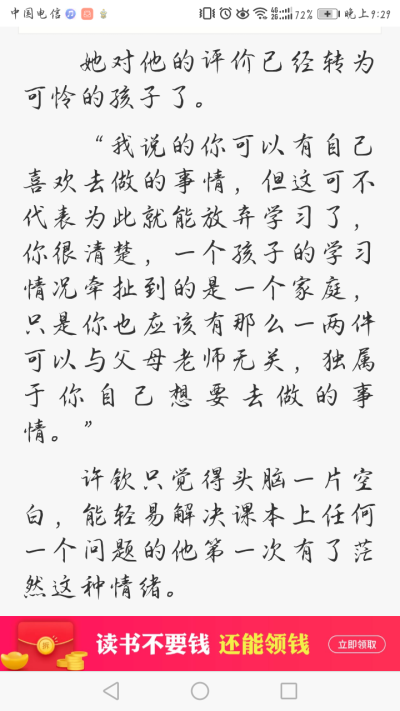 中国电信 4G 2G 72% 晚上9:29
她对他的评价已经转为
可怜的孩子了。
“我说的你可以有自己
喜欢去做的事情，但这可不
代表为此就能放弃学习了，
你很清楚，一个孩子的学习
情况牵扯到的是一个家庭，
只是你也应该有那么一两件
可以与父母老师无关，独属
于你自己想要去做的事
情。”
许钦只觉得头脑一片空
白，能轻易解决课本上任何
一个问题的他第一次有了茫
然这种情绪。
拆 读书不要钱 还能领钱 立即领取